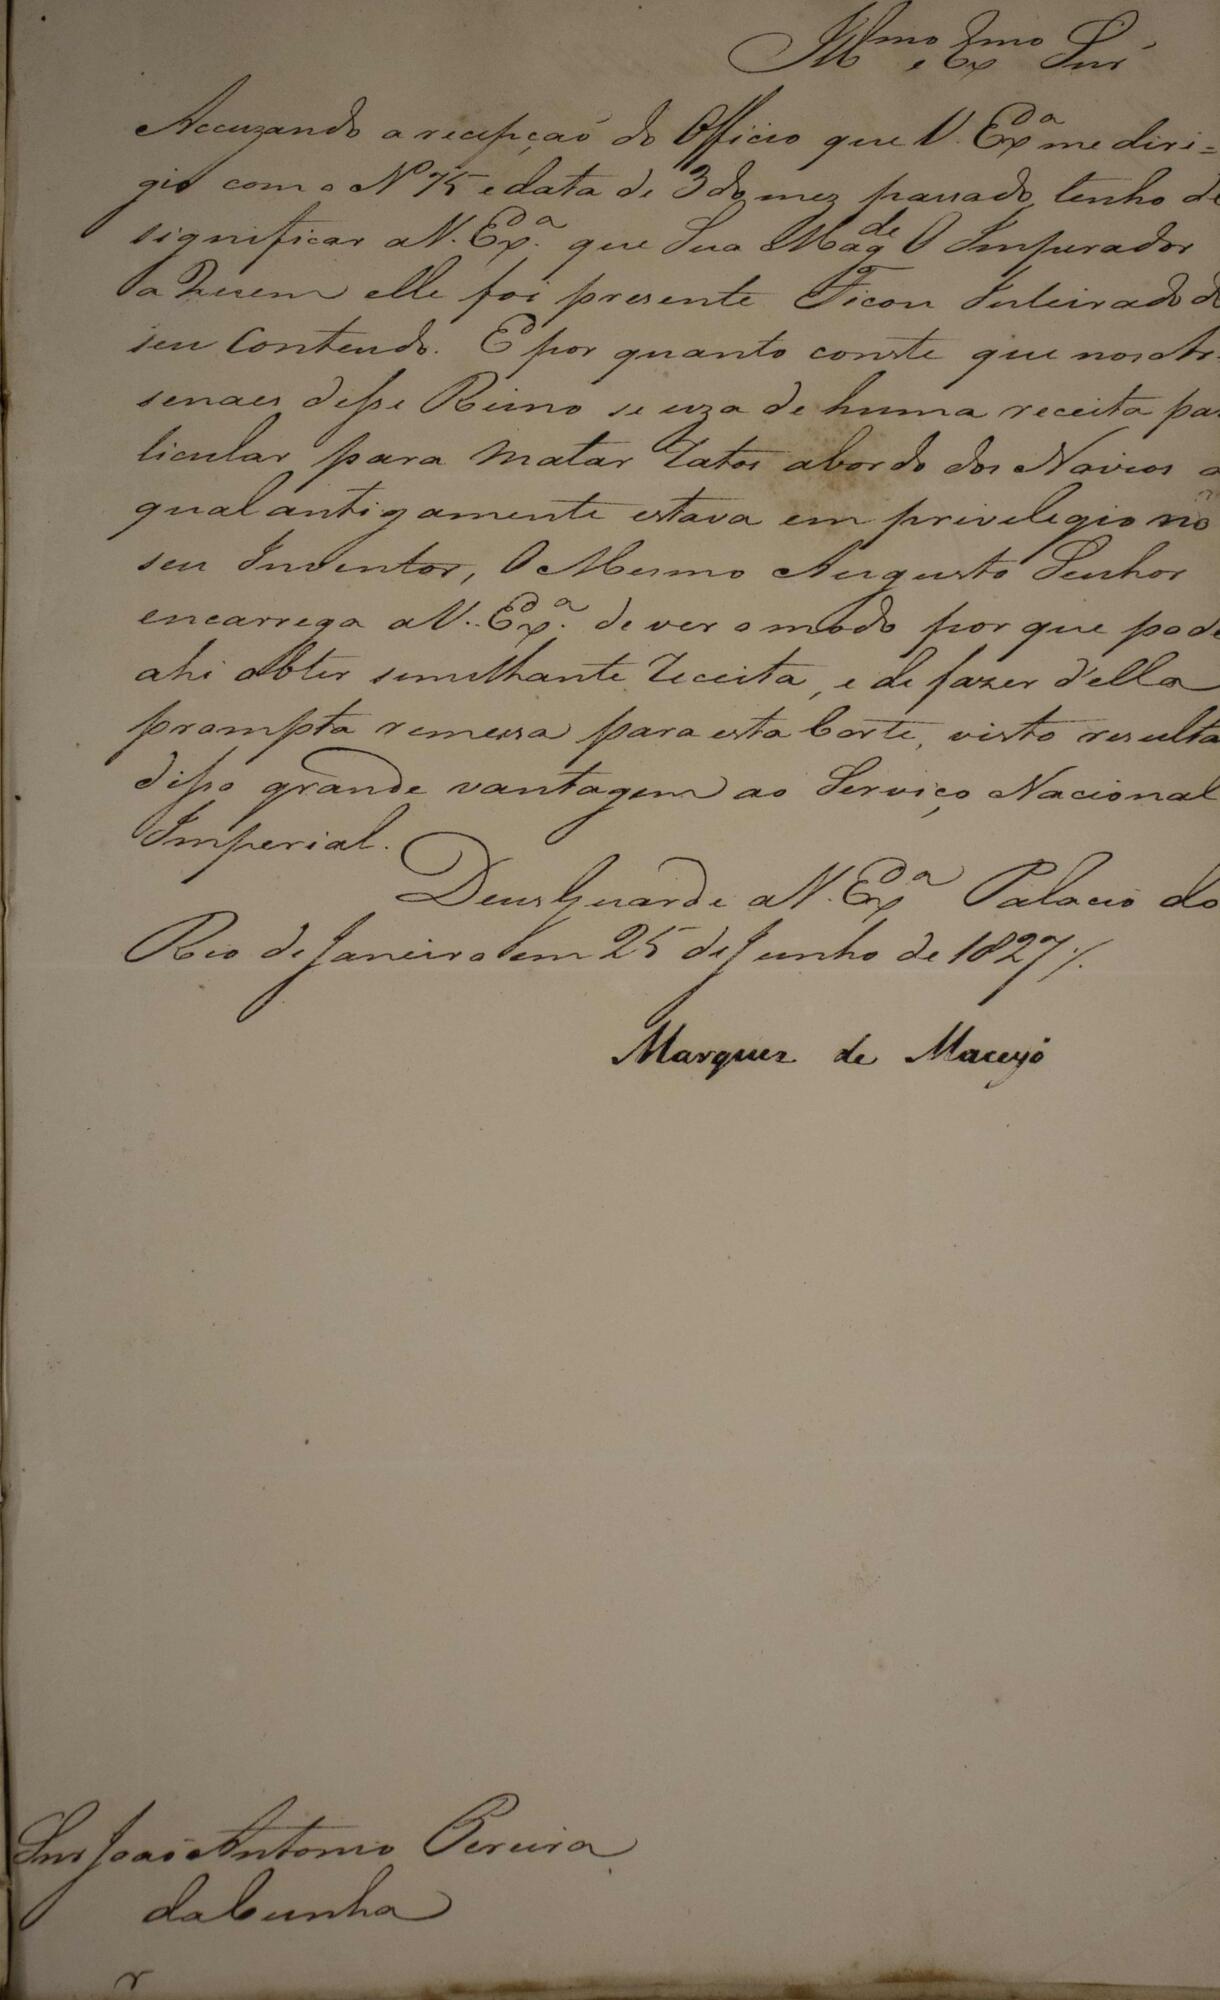 Illmo e Exmo Snr
Accuzando a recepção do Officio que V. Exa me diri=
gio com o No 75 e data de 3 do mez passado, tenho de
significar a V. Exa. que Sua Magde O Imperador
a Quem elle foi presente Ficou Inteirado do
seu Contendo. E por quanto conste que nos Ar-
senaes desse Reino se uza de huma receita par
ticular para matar ratos abordo dos Navios a
qual antigamente estava em privilegio no
seu Inventor, O Mesmo Augusto Senhor
encarrega a V. Exa. de ver o modo por que pode
ahi obter semelhante receita, e de fazer d'ella
prompta remessa para esta Corte, visto resulta
disso grande vantagem ao Serviço Nacional
Imperial.
Deus Guarde a V. Exa Palacio do
Rio de Janeiro em 25 de Junho de 1827/.
Marquez de Maceyó
Snr João Antonio Pereira
da Cunha